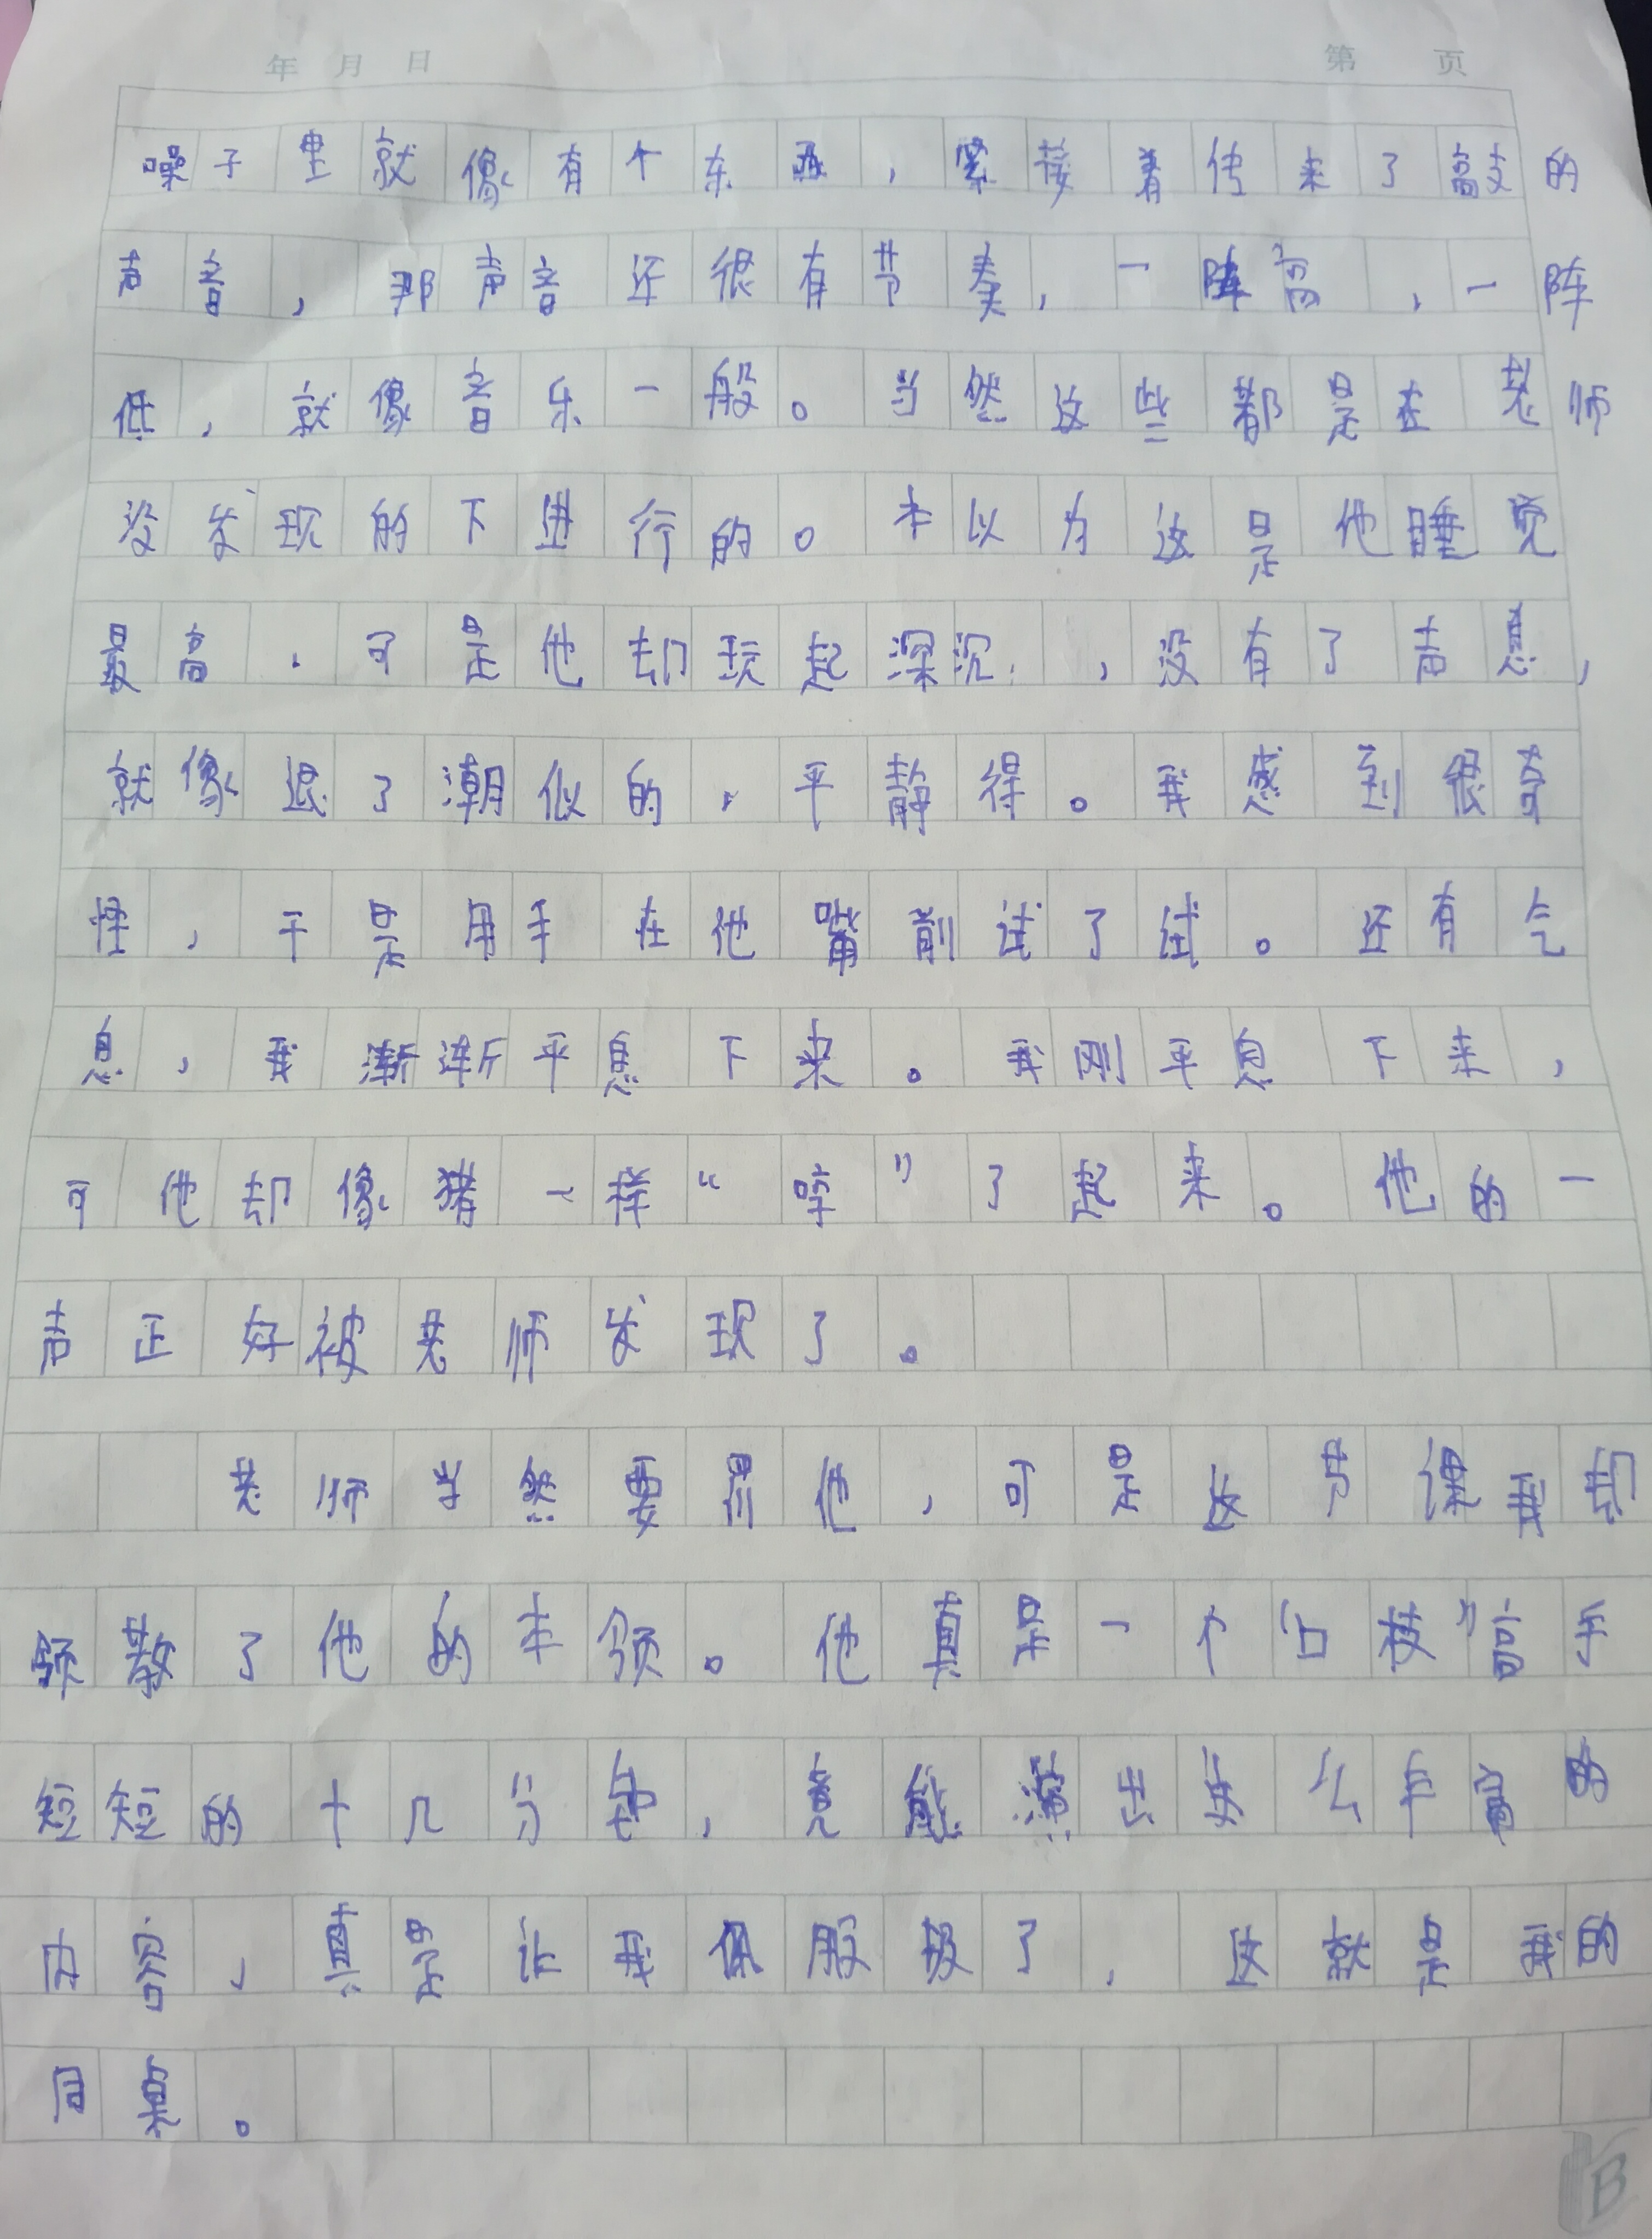 年 月 日 第 页
噪子里就像有个东西，紧接着传来了敲的
声音，那声音还很有节奏，一阵高，一阵
低，就像音乐一般。当然这些都是在老师
没发现的下进行的。本以为这是他睡觉
最高，可是他却玩起深沉，没有了声息，
就像退了潮似的，平静得。我感到很奇
怪，于是用手在他嘴前试了试。还有气
息，我渐渐平息下来。我刚平息下来，
可他却像猪一样“哼”了起来。他的一
声正好被老师发现了。
老师当然要罚他，可是这节课我却
领教了他的本领。他真是一个口技高手
短短的十几分钟，竟能演出这么丰富的
内容，真是让我佩服极了，这就是我的
同桌。
B